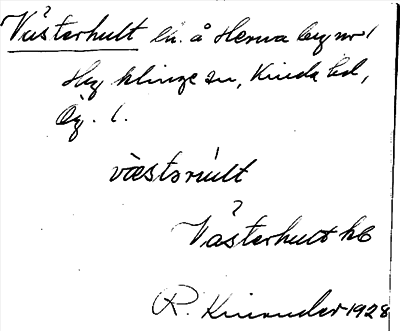 Västerhult lh. å Herva by nr 1
Hyklinge sn, Kinda hd,
Ög. l.
vàestərúlt
Västerhult kb
R. Kinander 1928